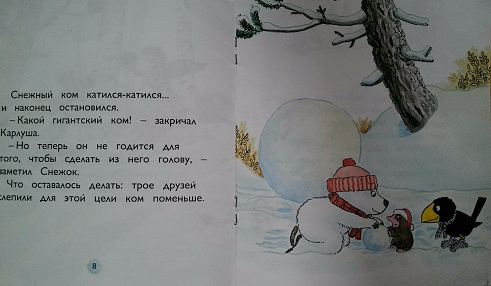 Снежный ком катился-катился...
и наконец остановился.
– Какой гигантский ком! – закричал
Карлуша.
– Но теперь он не годится для
того, чтобы сделать из него голову, –
заметил Снежок.
Что оставалось делать: трое друзей
слепили для этой цели ком поменьше.
8